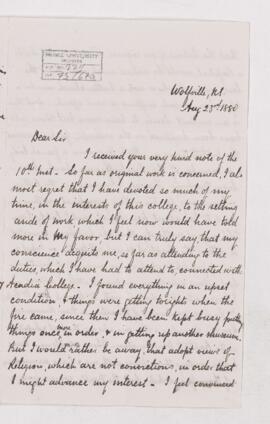 UNIVERSITY
ARCHIVES
ACC. 727
REF. 75/670
Wolfville, N.S.
Aug 23rd 1880
Dear Sir
I received your very kind note of the
10th inst. So far as original work is concerned, I al
most regret that I have devoted so much of my
time, in the interests of this college, to the setting
aside of work which I feel now would have told
more in my favor, but I can truly say that my
conscience acquits me, so far as attending to the
duties, which I have had to attend to, connected with
Acadia College. I found everything in an upset
condition, & things were getting to rights when the
fire came, since then I have been kept busy putting
things once more in order, & in getting up another museum.
But I would rather be away, that adopt views of
Religion, which are not convictions, in order that
I might advance my interest. I feel convinced